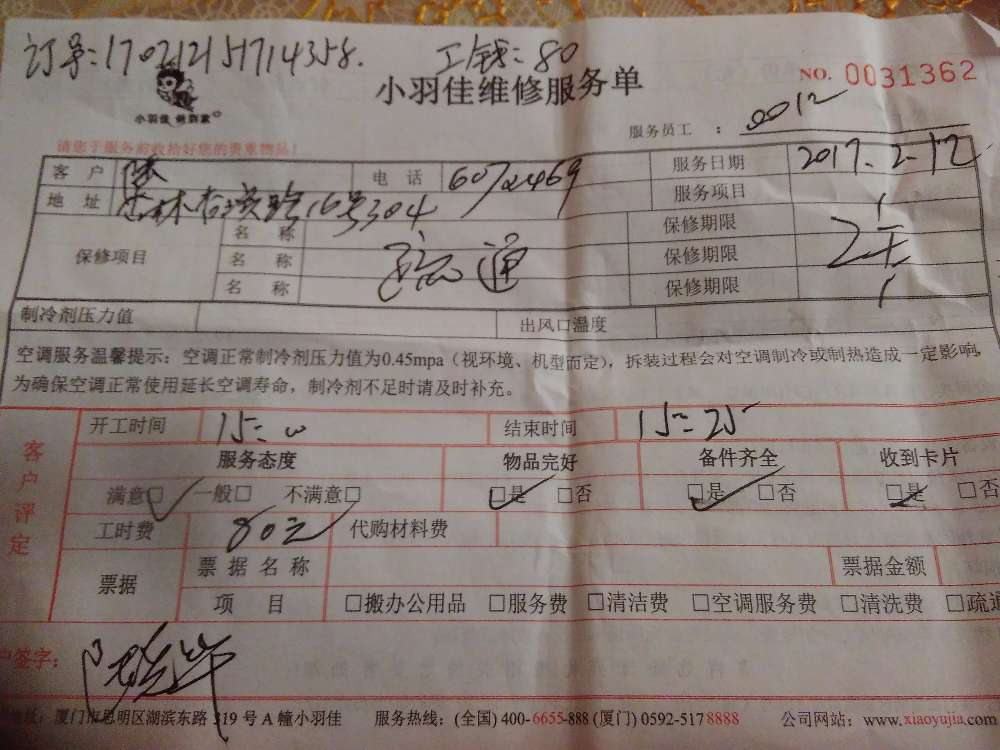 订号:170212151714358. 工钱:80
小羽佳 维修服务单 NO. 0031362
小羽佳
服务员工 : 0012
请您于服务前收拾好您的贵重物品!
客 户 陈 电 话 6072469 服务日期 2017.2.12
地 址 16号304 服务项目
保修项目 名 称 疏通 保修期限
名 称 保修期限
名 称 保修期限
制冷剂压力值 出风口温度
空调服务温馨提示:空调正常制冷剂压力值为0.45mpa(视环境、机型而定),拆装过程会对空调制冷或制热造成一定影响,
为确保空调正常使用延长空调寿命,制冷剂不足时请及时补充。
客户评定
开工时间 15:00 结束时间 15:25
服务态度 物品完好 备件齐全 收到卡片
满意□ 一般□ 不满意□ □是 □否 □是 □否 □是 □否
工时费 80元 代购材料费
票据 票据名称 票据金额
项 目 □搬办公用品 □服务费 □清洁费 □空调服务费 □清洗费 □疏通
户签字:
地址:厦门市思明区湖滨东路319号A幢小羽佳 服务热线:(全国)400-6655-888(厦门)0592-5178888 公司网站:www.xiaoyujia.com